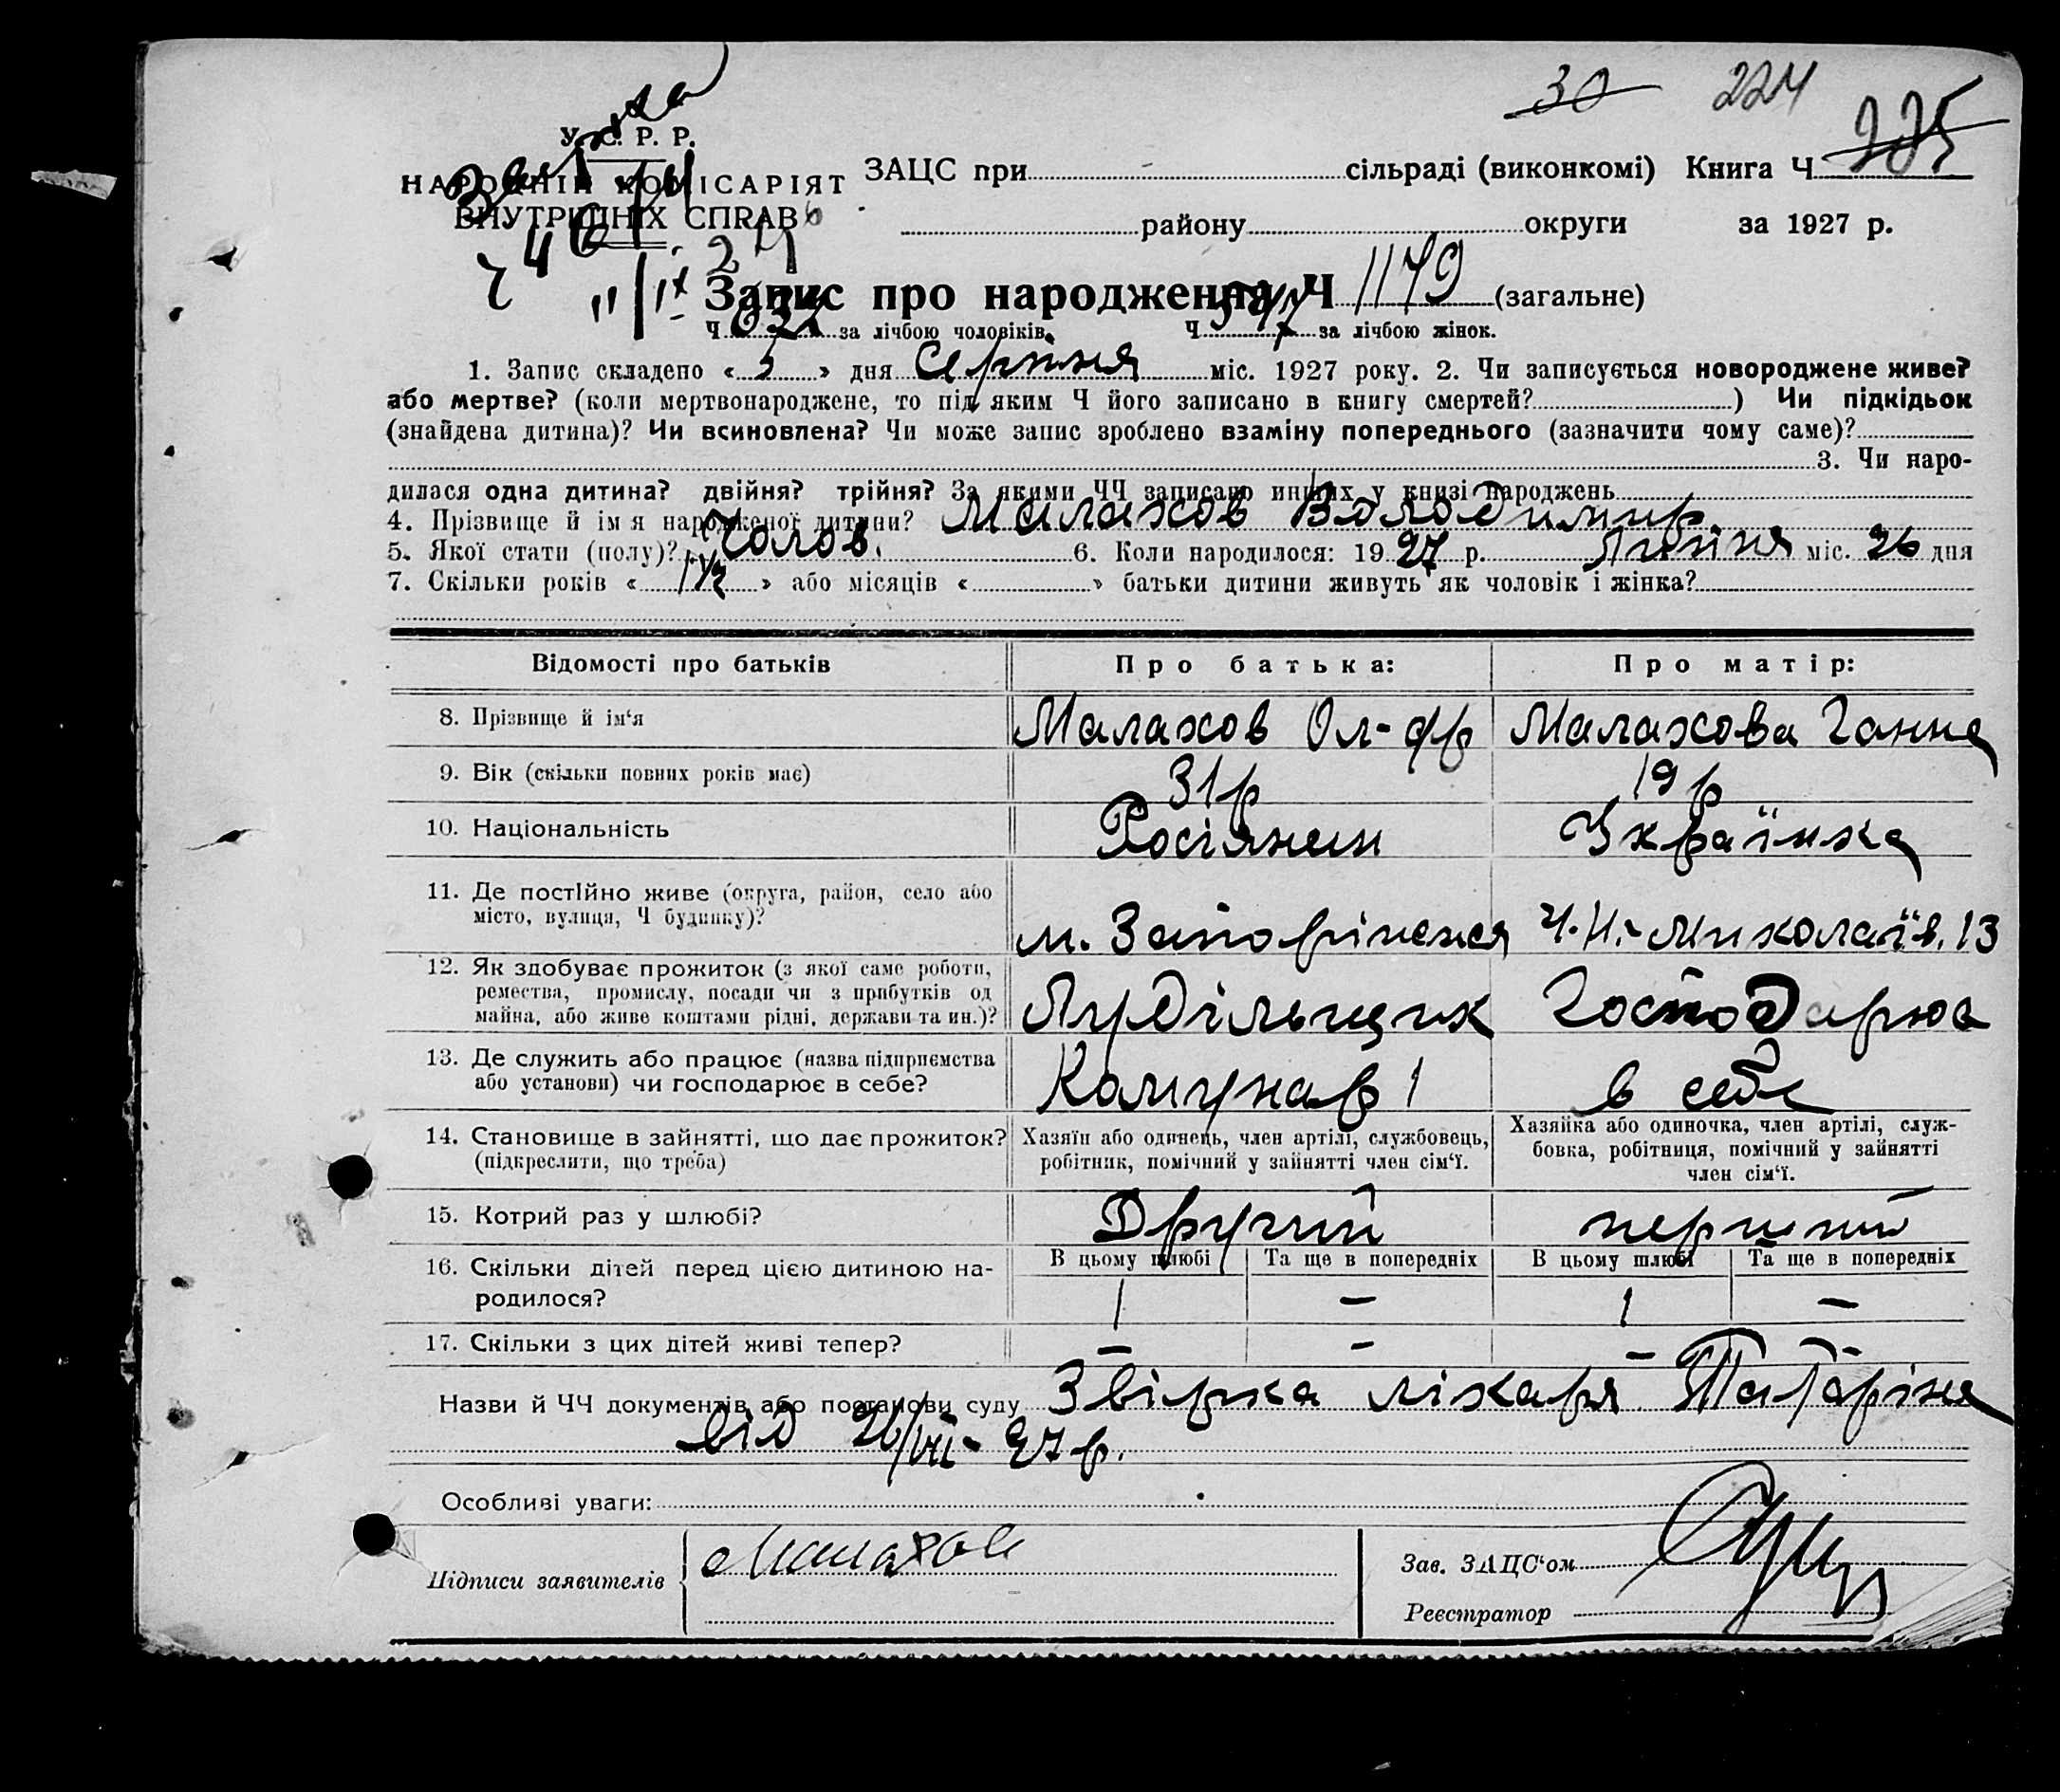 30 224
У. С. Р. Р.
НАРОДНІЙ КОМІСАРІЯТ
ВНУТРІШНІХ СПRАВ
ЗАЦС при сільраді (виконкомі) Книга Ч 225
району округи за 1927 р.
Запис про народження Ч 1179 (загальне)
Ч 632 за лічбою чоловіків. Ч 547 за лічбою жінок.
1. Запис складено « 3 » дня Серпня міс. 1927 року. 2. Чи записується новороджене живе?
або мертве? (коли мертвонароджене, то під яким Ч його записано в книгу смертей? ) Чи підкідьок
(знайдена дитина)? Чи всиновлена? Чи може запис зроблено взаміну попереднього (зазначити чому саме)?
3. Чи наро-
дилася одна дитина? двійня? трійня? За якими ЧЧ записано инших у книзі народжень
4. Прізвище й ім я народженої дитини? Малахов Володимир
5. Якої стати (полу)? Чолов. 6. Коли народилося: 19 27 р. Липня міс. 26 дня
7. Скільки років « 1 1/2 » або місяців « » батьки дитини живуть як чоловік і жінка?
Відомості про батьків Про батька: Про матір:
8. Прізвище й ім‘я Малахов Ол-др Малахова Ганна
9. Вік (скільки повних років має) 31 р 19 р
10. Національність Росіянин Українка
11. Де постійно живе (округа, район, село або
місто, вулиця, Ч будинку)? м. Запоріжжя Ч. И. Миколаїв. 13
12. Як здобуває прожиток (з якої саме роботи,
ремества, промислу, посади чи з прибутків од
майна, або живе коштами рідні, держави та ин.)? Лудільщик Господарює
13. Де служить або працює (назва підприємства
або установи) чи господарює в себе? Комунар 1 в себе
14. Становище в зайнятті, що дає прожиток?
(підкреслити, що треба)
Хазяїн або одинець, член артілі, службовець,
робітник, помічний у зайнятті член сім‘ї.
Хазяйка або одиночка, член артілі, служ-
бовка, робітниця, помічний у зайнятті
член сім‘ї.
15. Котрий раз у шлюбі? Другий перший
В цьому шлюбі Та ще в попередніх В цьому шлюбі Та ще в попередніх
16. Скільки дітей перед цією дитиною на-
родилося? 1 — 1 —
17. Скільки з цих дітей живі тепер? — — — —
Назви й ЧЧ документів або постанови суду Звірка лікаря Татаріна
від 26/VII-27 р.
Особливі уваги:
Підписи заявителів Малахов
Зав. ЗАЦС‘ом
Реєстратор